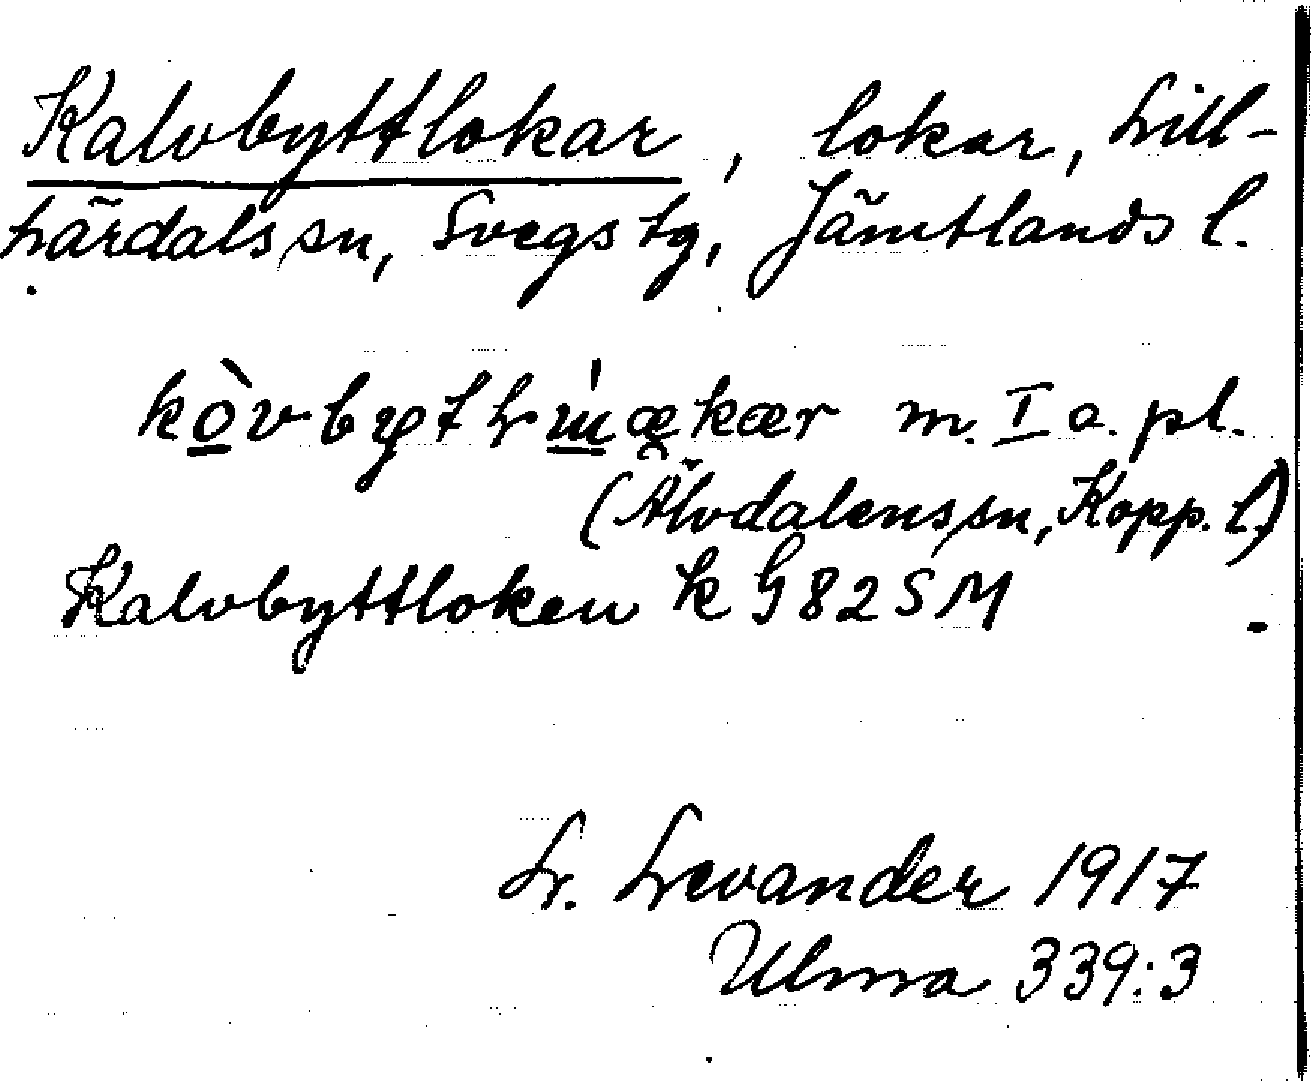 Kalvbyttlokar, lokar, Lill-
härdals sn, Svegs tg, Jämtlands l.
m. I a. pl.
(Älvdalens sn, Kopp. l.)
Kalvbyttloken k G 82 S M
L. Levander 1917
Ulma 339:3